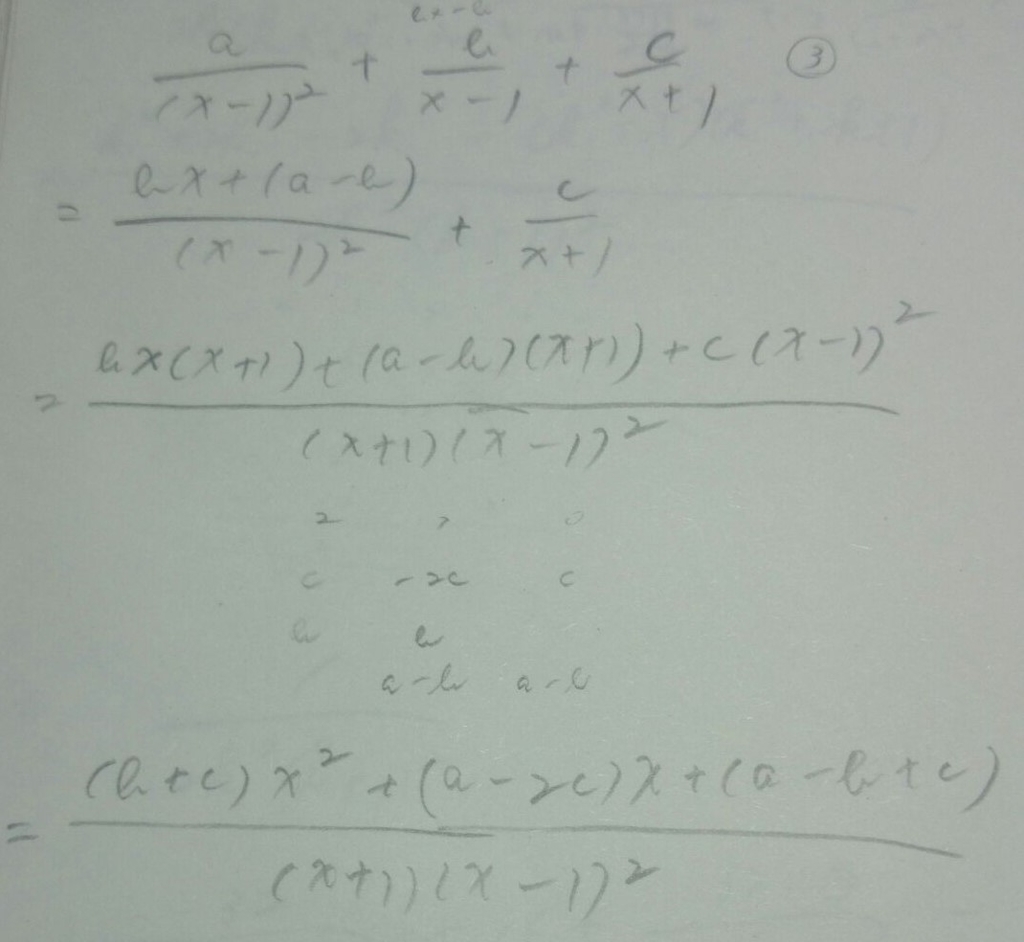 bx-b
a/(x-1)² + b/(x-1) + c/(x+1) ③
= (bx+(a-b))/(x-1)² + c/(x+1)
= (bx(x+1)+(a-b)(x+1)+c(x-1)²)/((x+1)(x-1)²)
2 1 0
c -2c c
b b
a-b a-b
= ((b+c)x²+(a-2c)x+(a-b+c))/((x+1)(x-1)²)